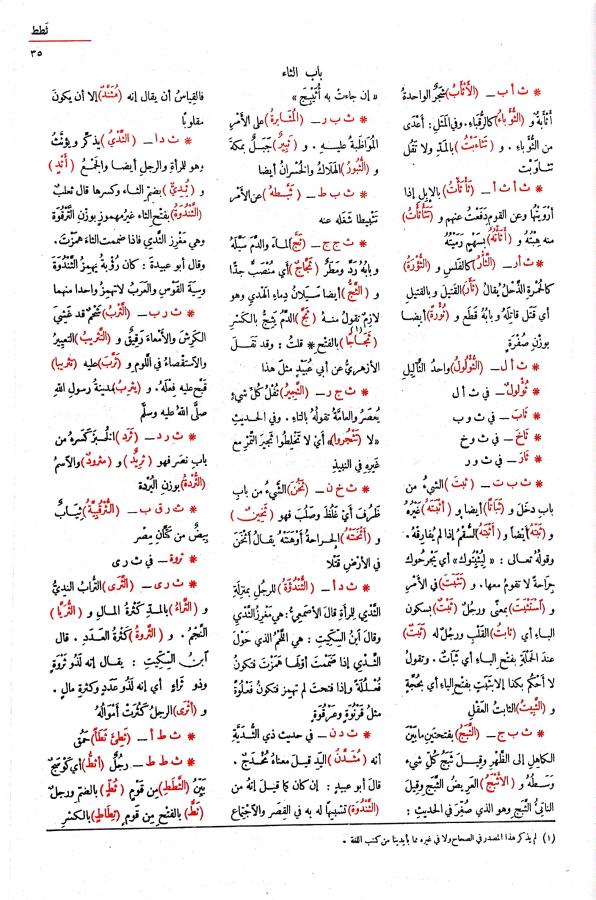 ثطط
٣٥
باب الثاء
* ث أ ب – (الأَثْأَبُ) شَجَرٌ الواحدة
أَثْأَبَةٌ و (الثُّؤَباءُ) كالرُّقَباءِ. وفي المَثَلِ : أَعْدَى
من الثُّؤَباءِ . و (تَثاءَبْتُ) بالمدّ ولا تَقُلْ
تثاوَبْتُ
* ث أ ث أ – (ثَأْثَأْتُ) بالإبل إذا
أَرْوَيْتَها وعن القوم دَفَعْتُ عنهم و (تَثَأْثَأْتُ)
منه هِبْتُه و (أَثَأْتُهُ) بسَهْمٍ رَمَيْتُه
* ث أ ر – (الثَّأْرُ) كالفَلْسِ و (الثُّؤْرَةُ)
كالحُمْرَةِ الذَّحْلُ يقالُ (ثَأَرَ) القَتيلَ وبالقتيلِ
أي قَتَلَ قاتِلَهُ وبابُه قَطَع و (ثُؤْرَةً) أيضا
بوزن صُفْرَة
* ث أ ل – (الثُّؤْلُولُ) واحدُ الثَّآلِيلِ
* ثُؤْلُولٌ – في ث أ ل
* ثَابَ – في ث و ب
* ثَاخَ – في ث و خ
* ثَارَ – في ث و ر
* ث ب ت – (ثَبَتَ) الشيءُ من
باب دَخَل و (ثَباتًا) أيضا و (أَثْبَتَهُ) غَيْرُهُ
و (ثَبَّتَهُ) أيضًا و (أَثْبَتَهُ) السُّقْمُ إذا لم يُفارِقْهُ .
وقولُه تعالى : «لِيُثْبِتُوكَ» أي يَجْرَحُوك
جِراحةً لا تقومُ معها . و (تَثَبَّتَ) في الأمرِ
و (اسْتَثْبَتَ) بمعنًى ورجُلٌ (ثَبْتٌ) بسكون
الباءِ أي (ثابِتُ) القَلْبِ ورجلٌ له (ثَبَتٌ)
عندَ الحملة بفتح الباءِ أي ثَباتٌ . وتقولُ
لا أَحْكُم بكذا إلا بِثَبَتٍ بفتح الباءِ أي بحُجّةٍ
و (الثَّبِيتُ) الثابتُ العقْلِ
* ث ب ج – (الثَّبَجُ) بفتحتين ما بَيْنَ
الكاهِلِ إلى الظَّهْرِ وقيلَ ثَبَجُ كُلِّ شيءٍ
وَسَطُه و (الأَثْبَجُ) العَرِيضُ الثَّبَجِ وقيلَ
الناتئُ الثَّبَجِ وهو الذي صُغِّرَ في الحديث :
« إن جاءتْ به أُثَيْبِجَ »
* ث ب ر – (المُثابَرةُ) على الأَمْرِ
المُواظَبةُ عليـه . و (ثَبِيرٌ) جَبَلٌ بمكةَ
و (الثُّبُورُ) الهَلاكُ والخُسْرانُ أيضا
* ث ب ط – (ثَبَّطَهُ) عن الأَمْرِ
تَثْبِيطا شَغَله عنه
* ث ج ج – (ثَجَّ) الماءَ والدَّمَ سَيَّلَهُ
وبابُه رَدَّ ومَطَرٌ (ثَجَّاجٌ) أي مُنْصَبٌّ جدًّا
و (الثَّجُّ) أيضا سَيَلانُ دِماءِ الهَدْيِ وهو
لازِمٌ تقولُ منـه (ثَجَّ) الدَّمُ يَثِجُّ بالكَسْر
(ثَجاجًا) (١) بالفتح * قلتُ : وقد نَقَلَ
الأَزْهَرِيُّ عن أبي عُبَيْدٍ مثلَ هذا
* ث ج ر – (الثَّجِيرُ) ثُفْلُ كُلِّ شيءٍ
يُعْصَرُ والعامّةُ تقولُهُ بالتاءِ . وفي الحديث
«لا (تَثْجُرُوا)» أي لا تَخْلِطُوا ثَجِيرَ التَّمْرِ مع
غَيْرِه في النبيذِ
* ث خ ن – (ثَخُنَ) الشَّيْءُ من باب
ظَرُف أي غَلُظَ وصَلُبَ فهو (ثَخِينٌ)
و (أَثْخَنَتْهُ) الجِراحةُ أَوْهَنَتْهُ يقالُ أَثْخَنَ
في الأرضِ قَتْلًا
* ث د أ – (الثُّنْدُؤَةُ) للرجُلِ بمنزلةِ
الثَّدْيِ للمرأةِ قالَ الأصمعيُّ : هي مَغْرِزُ الثَّدْيِ
وقالَ ابنُ السِّكّيتِ : هي اللَّحْمُ الذي حَوْلَ
الثَّـدْيِ إذا ضَمَمْتَ أوَّلَها هَمَزْتَ فتكونُ
فُعْلُلَةً وإذا فتحت لم تهمِز فتكونُ فَعْلُوَةً
مثلُ قَرْنُوَةٍ وعَرْقُوَةٍ
* ث د ن – في حديث ذي الثُّدَيَّةِ
أنه (مُثَدَّنُ) اليَدِ قيلَ معناهُ مُخْدَجٌ .
قالَ أبو عبيدٍ : إن كانَ كما قيلَ إنهُ من
(الثُّنْدُوَةِ) تشبيهًا له به في القِصَرِ والاجْتِماعِ
فالقِياسُ أن يقالَ إنه (مُثَنَّدٌ) إلا أن يكونَ
مقلوبًا
* ث د ا – (الثَّدْيُ) يذكّر ويؤنَّثُ
وهو للمرأةِ والرجلِ أيضا والجمْعُ (أَثْدٍ)
و (ثُدِيٌّ) بضم الثاءِ وكسرها قالَ ثعلبٌ
(الثَّنْدُوَةُ) بفتح الثاء غيرَ مهموزٍ بوزْنِ التَّرْقُوَةِ
وهي مَغْرِزُ الثَّدْيِ فإذا ضممتَ الثاءَ همزْتَ .
وقالَ أبو عبيدةَ : كان رُؤْبةُ يهمِزُ الثُّنْدُؤَةَ
وسِيَةَ القَوْسِ والعَربُ لا تهمِزُ واحدا منهما
* ث ر ب – (الثَّرْبُ) شَحْمٌ قد غَشِيَ
الكَرِشَ والأَمعاءَ رَقيقٌ و (التَّثْرِيبُ) التَّعييرُ
والاستقصاءُ في اللَّومِ و (ثَرَّبَ) عليه (تَثْرِيبا)
قَبَّحَ عليهِ فِعْلَهُ . و (يَثْرِبُ) مدينةُ رسول الله
صلَّى اللهُ عليه وسلّم
* ث ر د – (ثَرَدَ) الخُبْزَ كَسَرَهُ من
باب نَصَر فهو (ثَرِيدٌ) و (مَثْرُودٌ) والاسمُ
(الثُّرْدَةُ) بوزن البُرْدة
* ث ر ق ب – (الثُّرْقُبِيَّةُ) ثِيَابٌ
بِيضٌ من كَتَّانِ مِصْرَ
* ثَرْوة – في ث ر ى
* ث ر ى – (الثَّرَى) التُّرابُ النَّدِيُّ
و (الثَّراءُ) بالمـدّ كَثْرةُ المـالِ و (الثُّرَيَّا)
النَّجْمُ . و (الثَّرْوةُ) كَثْرةُ العَدَدِ . قال
ابنُ السِّكِّيتِ : يقالُ إنه لَذُو ثَرْوَةٍ
وذو ثَراءٍ أي إنه لَذُو عَددٍ وكثرةِ مالٍ .
و (أَثْرَى) الرجلُ كَثُرَتْ أَمْوالُه
* ث ط أ – (ثَطِئَ ثَطَأً) حَمُقَ
* ث ط ط – رَجُلٌ (أَثَطُّ) أي كَوْسَجٌ
بَيِّنُ (الثَّطَطِ) من قَوْمٍ (ثُطٍّ) بالضم ورجلٌ
(ثَطٌّ) بالفَتْح من قَومٍ (ثِطَاطٍ) بالكَسْر
(١) لم يذكر هذا المصدر في الصحاح ولا في غيره مما بأيدينا من كتب اللغة .